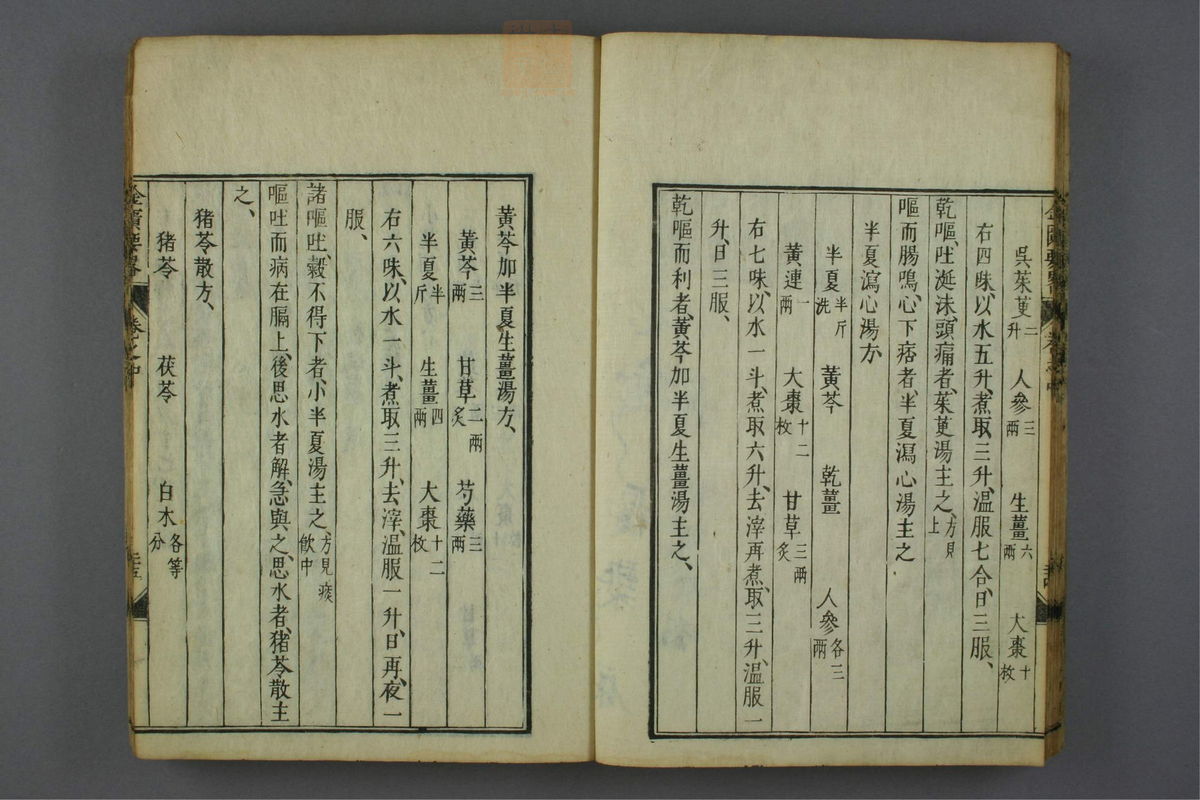 吳茱萸二升　人參三兩　生薑六兩　大棗十枚
右四味、以水五升、煮取三升、溫服七合、日三服、
乾嘔、吐涎沫、頭痛者、茱萸湯主之、方見上
嘔而腸鳴、心下痞者、半夏瀉心湯主之
半夏瀉心湯方
半夏半斤洗　黃芩　乾薑　人參各三兩
黃連一兩　大棗十二枚　甘草三兩炙
右七味、以水一斗、煮取六升、去滓再煮、取三升、溫服一
升、日三服、
乾嘔而利者、黃芩加半夏生薑湯主之、
黃芩加半夏生薑湯方、
黃芩三兩　甘草二兩炙　芍藥三兩
半夏半斤　生薑四兩　大棗十二枚
右六味、以水一斗、煮取三升、去滓、溫服一升、日再、夜一
服、
諸嘔吐、穀不得下者、小半夏湯主之、方見痰飲中
嘔吐而病在膈上、後思水者解、急與之、思水者、猪苓散主
之、
猪苓散方、
猪苓　茯苓　白朮各等分
金匱要畧　卷之中